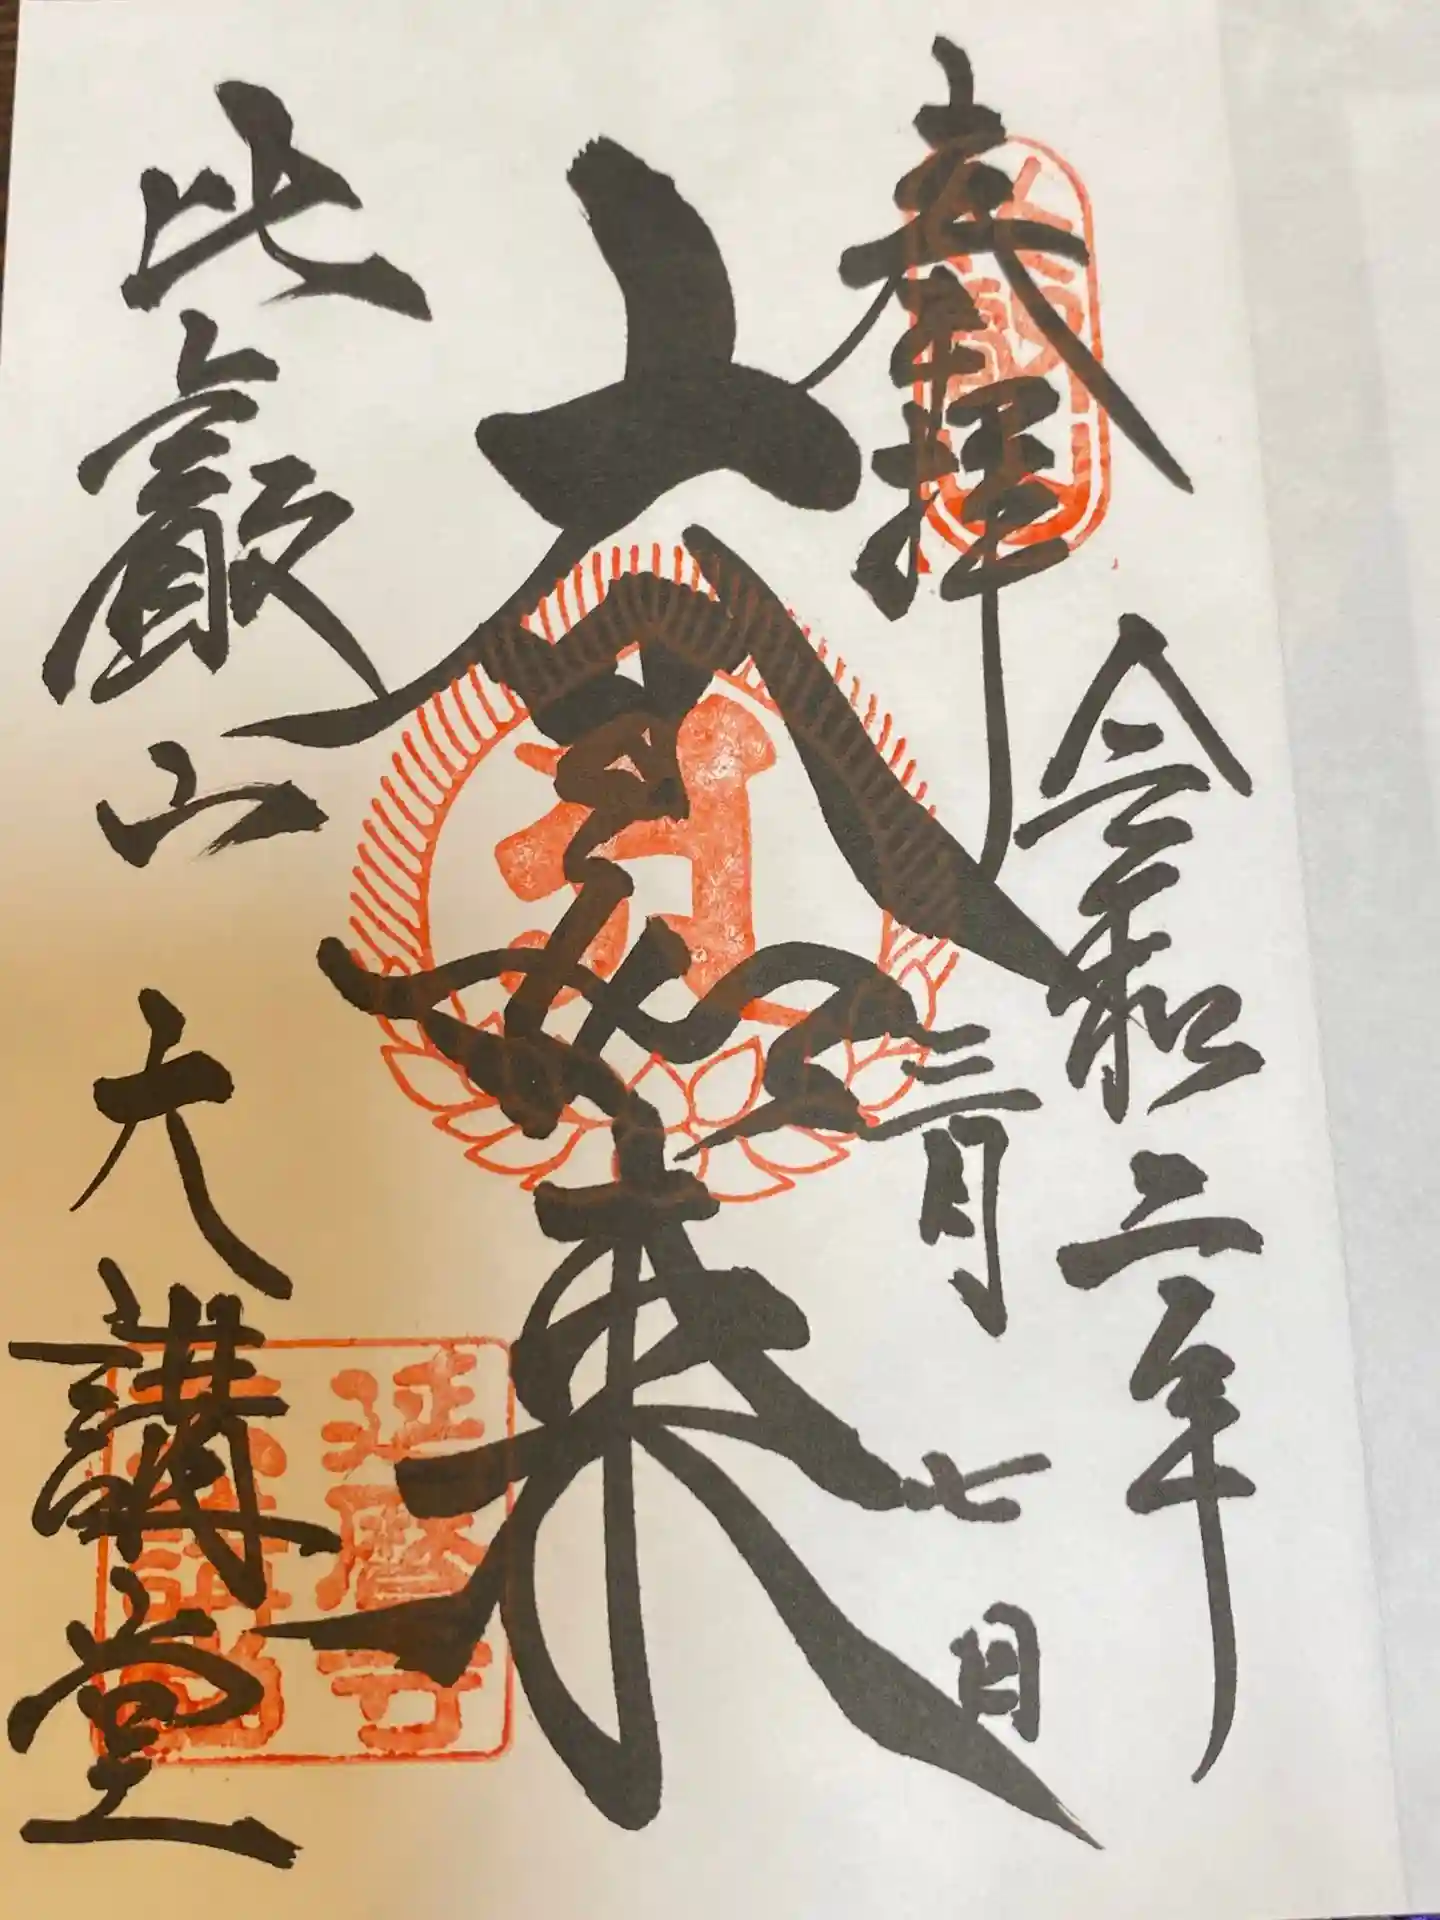 奉拝
令和二年
三月七日
大日如来
比叡山
大講堂
延暦寺
大講堂